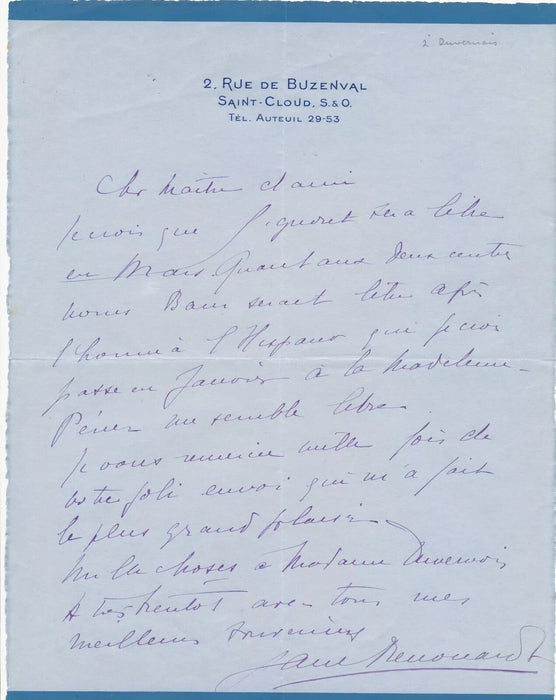 2' Duvernois
2, RUE DE BUZENVAL
SAINT-CLOUD, S. & O.
TÉL. AUTEUIL 29-53
Cher Maître et ami
Je crois que Signoret sera libre
en Mars Quant aux deux autres
noms Baur serait libre après
l'homme à l'Hispano qui je crois
passe en Janvier à la Madeleine -
Périer me semble libre
Je vous remercie mille fois de
votre joli envoi qui m'a fait
le plus grand plaisir
Mille choses à Madame Duvernois
A très bientôt avec tous mes
meilleurs souvenirs
Jane Renouardt